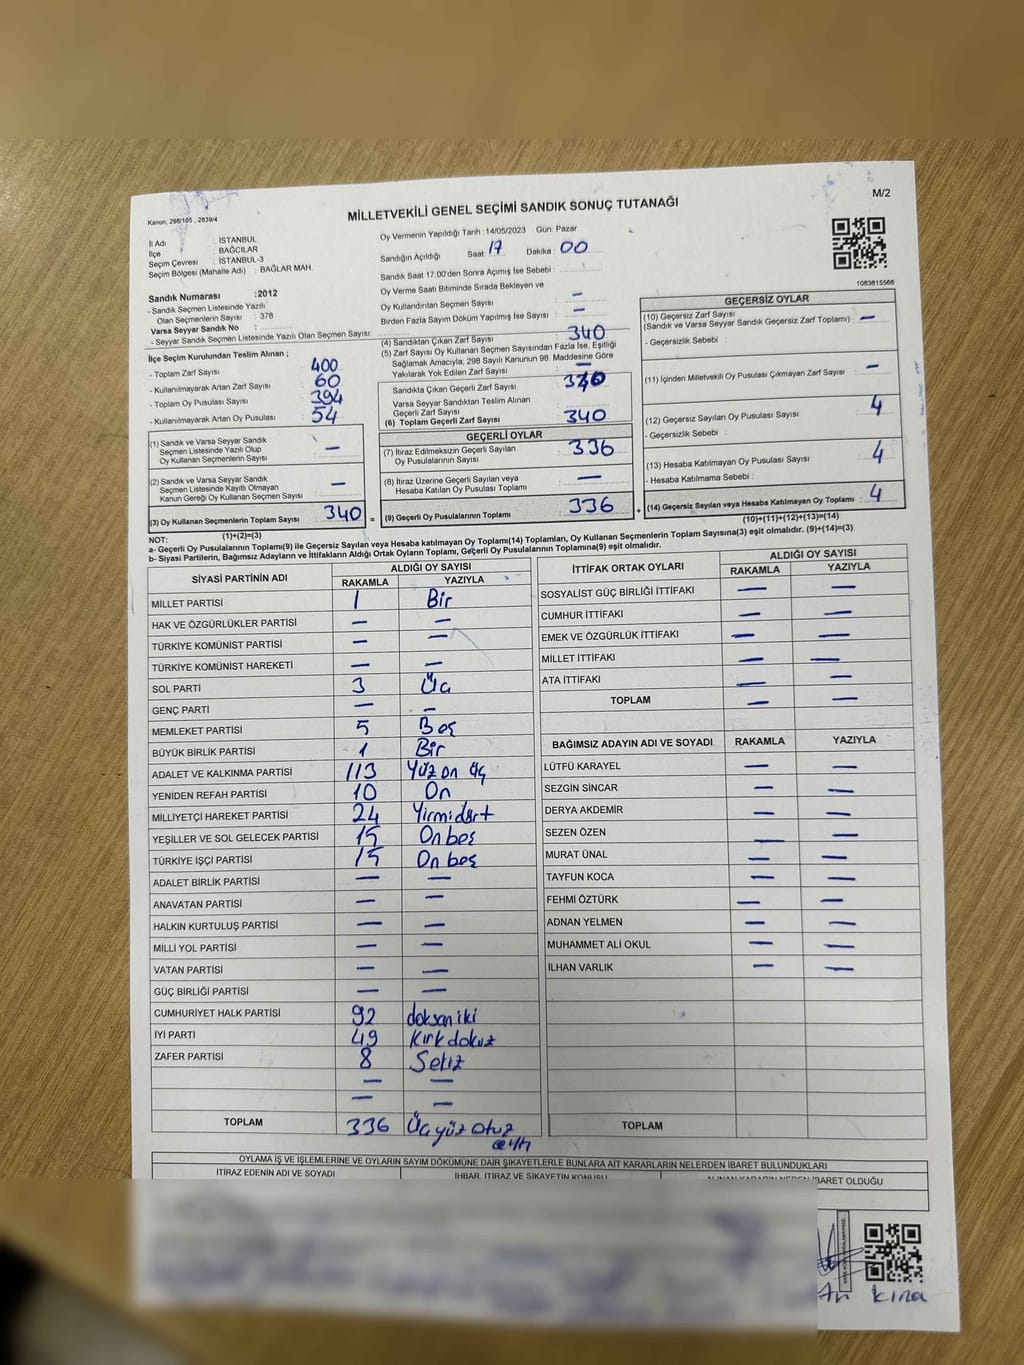 M/2
Kanun, 298/105 , 2839/4
MİLLETVEKİLİ GENEL SEÇİMİ SANDIK SONUÇ TUTANAĞI
İl Adı : İSTANBUL
İlçe : BAĞCILAR
Seçim Çevresi : İSTANBUL-3
Seçim Bölgesi (Mahalle Adı) : BAĞLAR MAH.
Oy Vermenin Yapıldığı Tarih :14/05/2023 Gün: Pazar
Sandığın Açıldığı Saat 17 Dakika 00
Sandık Saat 17.00'den Sonra Açımış İse Sebebi :
Oy Verme Saati Bitiminde Sırada Bekleyen ve
Oy Kullandırılan Seçmen Sayısı : —
Birden Fazla Sayım Döküm Yapılmış İse Sayısı : —
1083615566
Sandık Numarası :2012
- Sandık Seçmen Listesinde Yazılı
Olan Seçmenlerin Sayısı : 378
Varsa Seyyar Sandık No :
- Seyyar Sandık Seçmen Listesinde Yazılı Olan Seçmen Sayısı:
İlçe Seçim Kurulundan Teslim Alınan ;
- Toplam Zarf Sayısı : 400
- Kullanılmayarak Artan Zarf Sayısı : 60
- Toplam Oy Pusulası Sayısı : 394
- Kullanılmayarak Artan Oy Pusulası : 54
(1) Sandık ve Varsa Seyyar Sandık
Seçmen Listesinde Yazılı Olup
Oy Kullanan Seçmenlerin Sayısı : —
(2) Sandık ve Varsa Seyyar Sandık
Seçmen Listesinde Kayıtlı Olmayan
Kanun Gereği Oy Kullanan Seçmen Sayısı : —
(3) Oy Kullanan Seçmenlerin Toplam Sayısı : 340 =
(1)+(2)=(3)
(4) Sandıktan Çıkan Zarf Sayısı : 340
(5) Zarf Sayısı Oy Kullanan Seçmen Sayısından Fazla İse, Eşitliği
Sağlamak Amacıyla; 298 Sayılı Kanunun 98. Maddesine Göre
Yakılarak Yok Edilen Zarf Sayısı : —
Sandıkta Çıkan Geçerli Zarf Sayısı : 340
Varsa Seyyar Sandıktan Teslim Alınan
Geçerli Zarf Sayısı :
(6) Toplam Geçerli Zarf Sayısı : 340
GEÇERLİ OYLAR
(7) İtiraz Edilmeksizin Geçerli Sayılan
Oy Pusulalarının Sayısı : 336
(8) İtiraz Üzerine Geçerli Sayılan veya
Hesaba Katılan Oy Pusulası Toplamı : —
(9) Geçerli Oy Pusulalarının Toplamı : 336 +
GEÇERSİZ OYLAR
(10) Geçersiz Zarf Sayısı
(Sandık ve Varsa Seyyar Sandık Geçersiz Zarf Toplamı) : —
- Geçersizlik Sebebi :
(11) İçinden Milletvekili Oy Pusulası Çıkmayan Zarf Sayısı : —
(12) Geçersiz Sayılan Oy Pusulası Sayısı : 4
- Geçersizlik Sebebi :
(13) Hesaba Katılmayan Oy Pusulası Sayısı : 4
- Hesaba Katılmama Sebebi :
(14) Geçersiz Sayılan veya Hesaba Katılmayan Oy Toplamı : 4
(10)+(11)+(12)+(13)=(14)
NOT:
a- Geçerli Oy Pusulalarının Toplamı(9) ile Geçersiz Sayılan veya Hesaba katılmayan Oy Toplamı(14) Toplamları, Oy Kullanan Seçmenlerin Toplam Sayısına(3) eşit olmalıdır. (9)+(14)=(3)
b- Siyasi Partilerin, Bağımsız Adayların ve İttifakların Aldığı Ortak Oyların Toplamı, Geçerli Oy Pusulalarının Toplamına(9) eşit olmalıdır.
SİYASİ PARTİNİN ADI ALDIĞI OY SAYISI
RAKAMLA YAZIYLA
MİLLET PARTİSİ 1 Bir
HAK VE ÖZGÜRLÜKLER PARTİSİ — —
TÜRKİYE KOMÜNİST PARTİSİ — —
TÜRKİYE KOMÜNİST HAREKETİ — —
SOL PARTİ 3 Üç
GENÇ PARTİ — —
MEMLEKET PARTİSİ 5 Beş
BÜYÜK BİRLİK PARTİSİ 1 Bir
ADALET VE KALKINMA PARTİSİ 113 Yüz on üç
YENİDEN REFAH PARTİSİ 10 On
MİLLİYETÇİ HAREKET PARTİSİ 24 Yirmidört
YEŞİLLER VE SOL GELECEK PARTİSİ 15 On beş
TÜRKİYE İŞÇİ PARTİSİ 15 On beş
ADALET BİRLİK PARTİSİ — —
ANAVATAN PARTİSİ — —
HALKIN KURTULUŞ PARTİSİ — —
MİLLİ YOL PARTİSİ — —
VATAN PARTİSİ — —
GÜÇ BİRLİĞİ PARTİSİ — —
CUMHURİYET HALK PARTİSİ 92 doksan iki
İYİ PARTİ 49 Kırk dokuz
ZAFER PARTİSİ 8 Sekiz
— —
— —
TOPLAM 336 Üç yüz otuz
altı
İTTİFAK ORTAK OYLARI ALDIĞI OY SAYISI
RAKAMLA YAZIYLA
SOSYALİST GÜÇ BİRLİĞİ İTTİFAKI — —
CUMHUR İTTİFAKI — —
EMEK VE ÖZGÜRLÜK İTTİFAKI — —
MİLLET İTTİFAKI — —
ATA İTTİFAKI — —
TOPLAM — —
BAĞIMSIZ ADAYIN ADI VE SOYADI RAKAMLA YAZIYLA
LÜTFÜ KARAYEL — —
SEZGİN SİNCAR — —
DERYA AKDEMİR — —
SEZEN ÖZEN — —
MURAT ÜNAL — —
TAYFUN KOCA — —
FEHMİ ÖZTÜRK — —
ADNAN YELMEN — —
MUHAMMET ALİ OKUL — —
İLHAN VARLIK — —
TOPLAM
OYLAMA İŞ VE İŞLEMLERİNE VE OYLARIN SAYIM DÖKÜMÜNE DAİR ŞİKAYETLERLE BUNLARA AİT KARARLARIN NELERDEN İBARET BULUNDUKLARI
İTİRAZ EDENİN ADI VE SOYADI İHBAR, İTİRAZ VE ŞİKAYETİN KONUSU ALINAN KARARIN NEDEN İBARET OLDUĞU